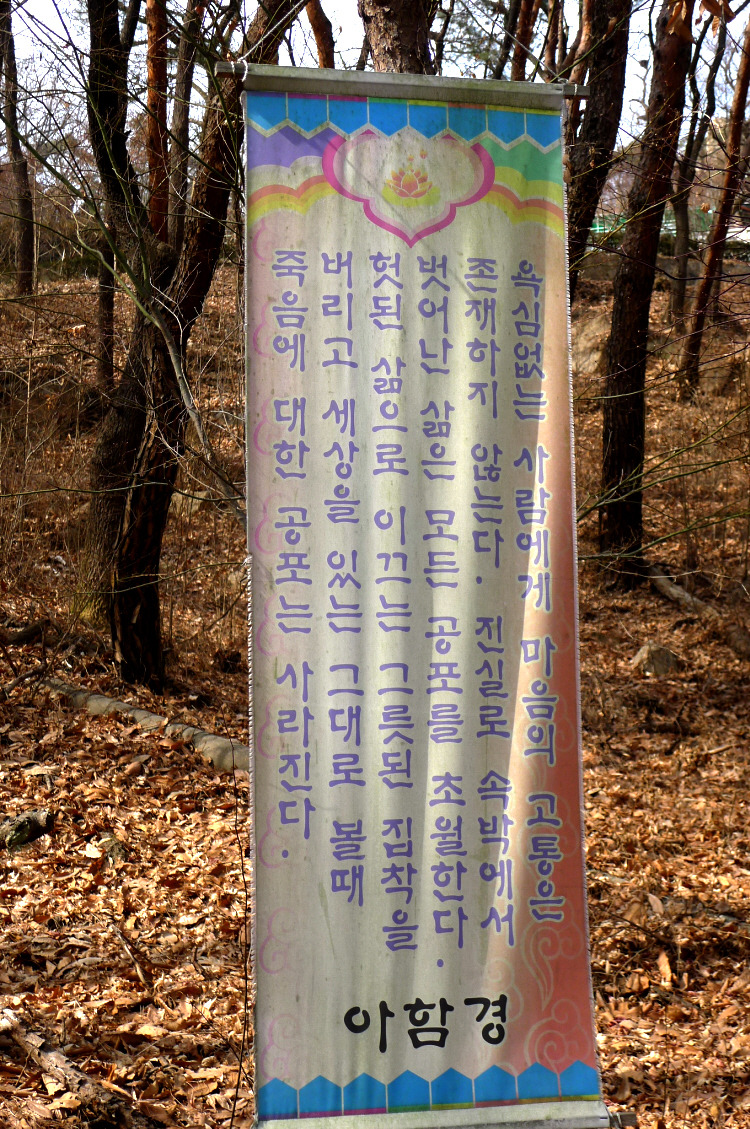 욕심없는 사람에게 마음의 고통은
존재하지 않는다. 진실로 속박에서
벗어난 삶은 모든 공포를 초월한다.
헛된 삶으로 이끄는 그릇된 집착을
버리고 세상을 있는 그대로 볼때
죽음에 대한 공포는 사라진다.
아함경